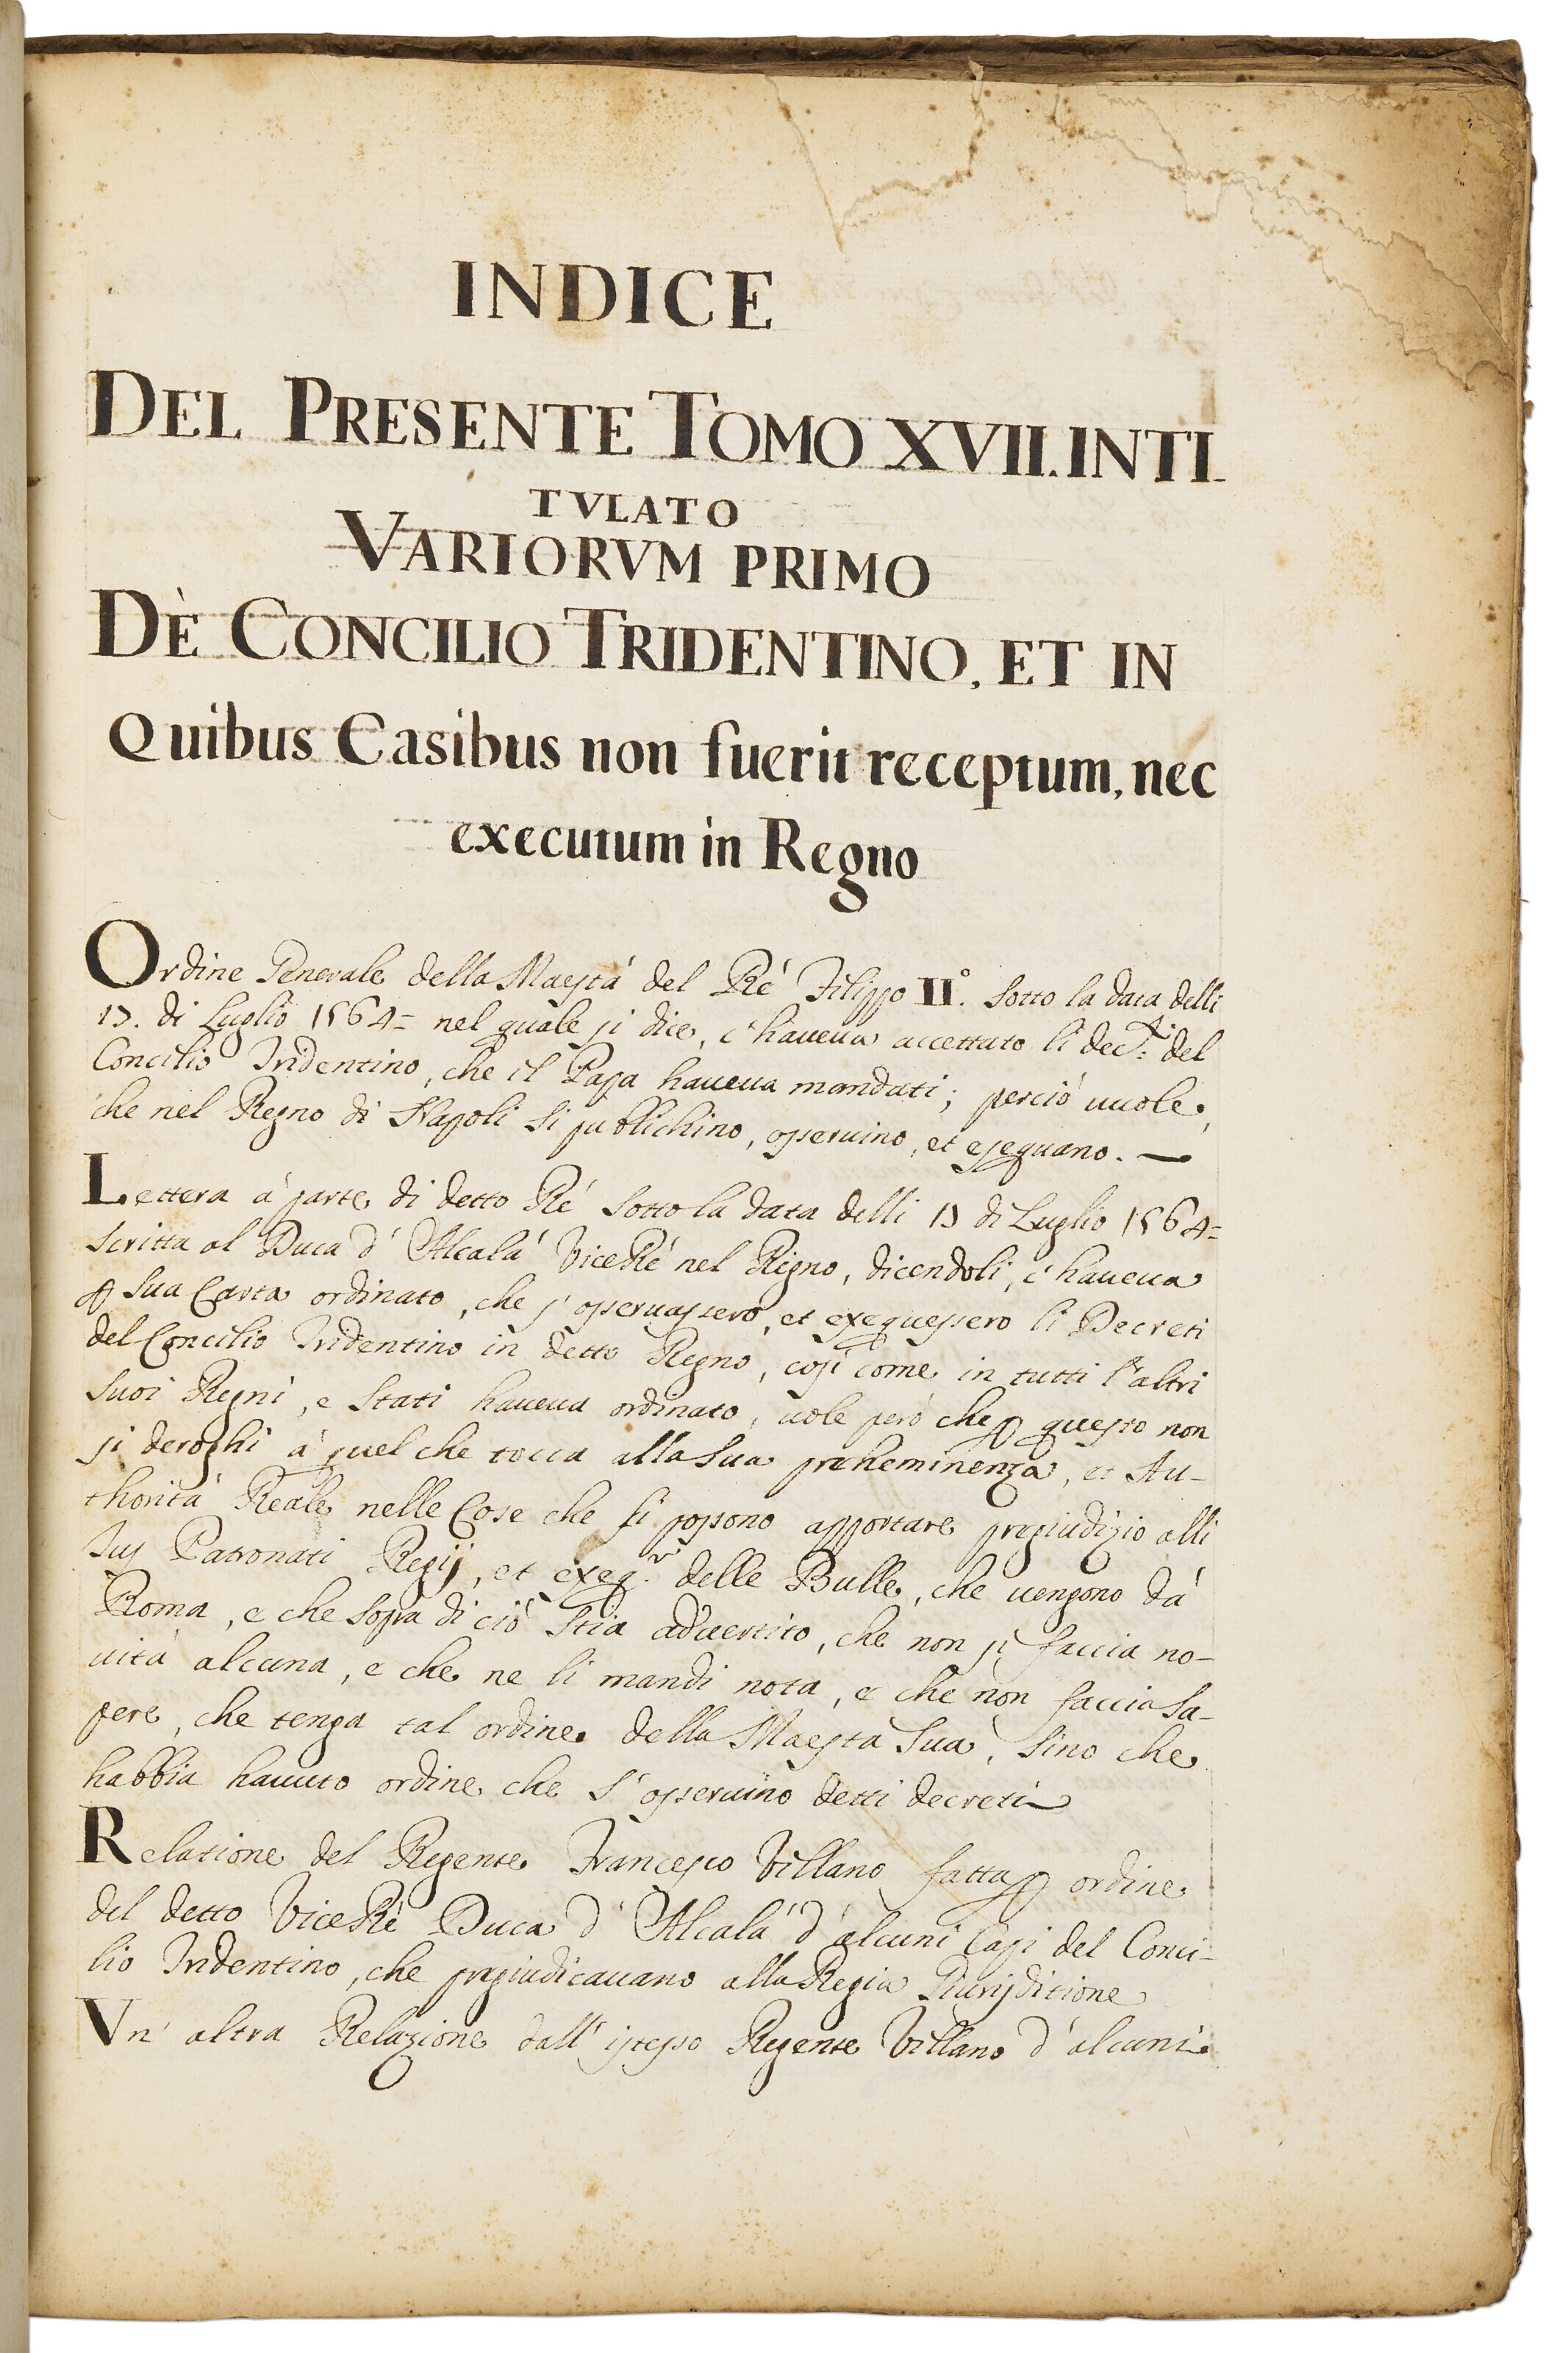 INDICE
DEL PRESENTE TOMO XVII. INTI-
TVLATO
VARIORVM PRIMO
DÈ CONCILIO TRIDENTINO, ET IN
Quibus Casibus non fuerit receptum, nec
executum in Regno
Ordine Generale della Maestà del Ré Filippo II°. sotto la data delli
13. di Luglio 1564= nel quale si dice, c'haueua accettato li dec.ti del
Concilio Tridentino, che il Papa haueua mandati; perciò uuole,
che nel Regno di Napoli si publichino, osseruino, et eseguano. —
Lettera à parte di detto Ré sotto la data delli 13 di Luglio 1564=
scritta al Duca d'Alcalà ViceRé nel Regno, dicendoli, c'haueua
ꝑ sua Carta ordinato, che s'osseruassero, et exequessero li Decreti
del Concilio Tridentino in detto Regno, così come in tutti l'altri
suoi Regni, e Stati haueua ordinato, uole però che ꝑ questo non
si deroghi à quel che tocca alla sua preheminenza, et Au-
thorità Reale nelle Cose che si possono apportare pregiudizio alli
Jus Patronati Regij, et exeq.r delle Bulle, che uengono dà
Roma, e che sopra di ciò stia aduertito, che non si faccia no-
uità alcuna, e che ne li mandi nota, e che non faccia sa-
pere, che tenga tal ordine della Maestà Sua, sino che
habbia hauuto ordine che s'osseruino detti decreti
Relatione del Regente Francesco Villano fatta ꝑ ordine
del detto ViceRè Duca d'Alcalà d'alcuni Casi del Conci-
lio Tridentino, che pregiudicauano alla Regia Giurisditione
Vn'altra Relazione dall'istesso Regente Villano d'alcuni